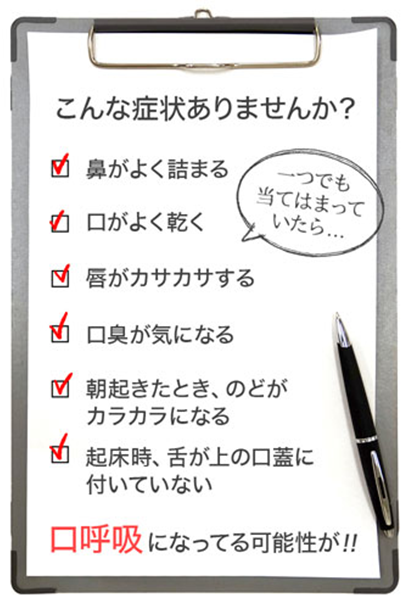 こんな症状ありませんか？
鼻がよく詰まる
一つでも
当てはまって
いたら…
口がよく乾く
唇がカサカサする
口臭が気になる
朝起きたとき、のどが
カラカラになる
起床時、舌が上の口蓋に
付いていない
口呼吸になってる可能性が!!